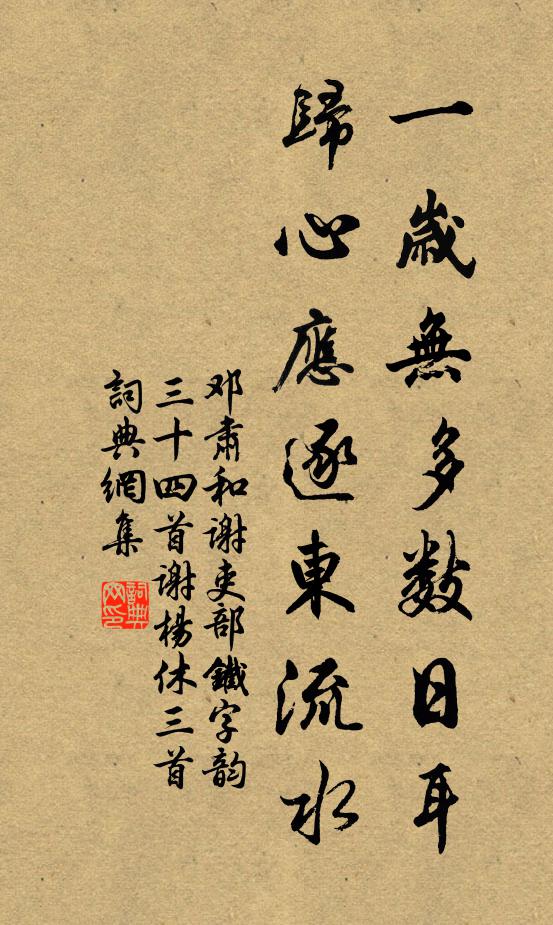 一歲無多數日耳
歸心應逐東流水
邓肅和谢吏部鐵字韵
三十四首谢楊休三首
詞典網集
詞典
网印